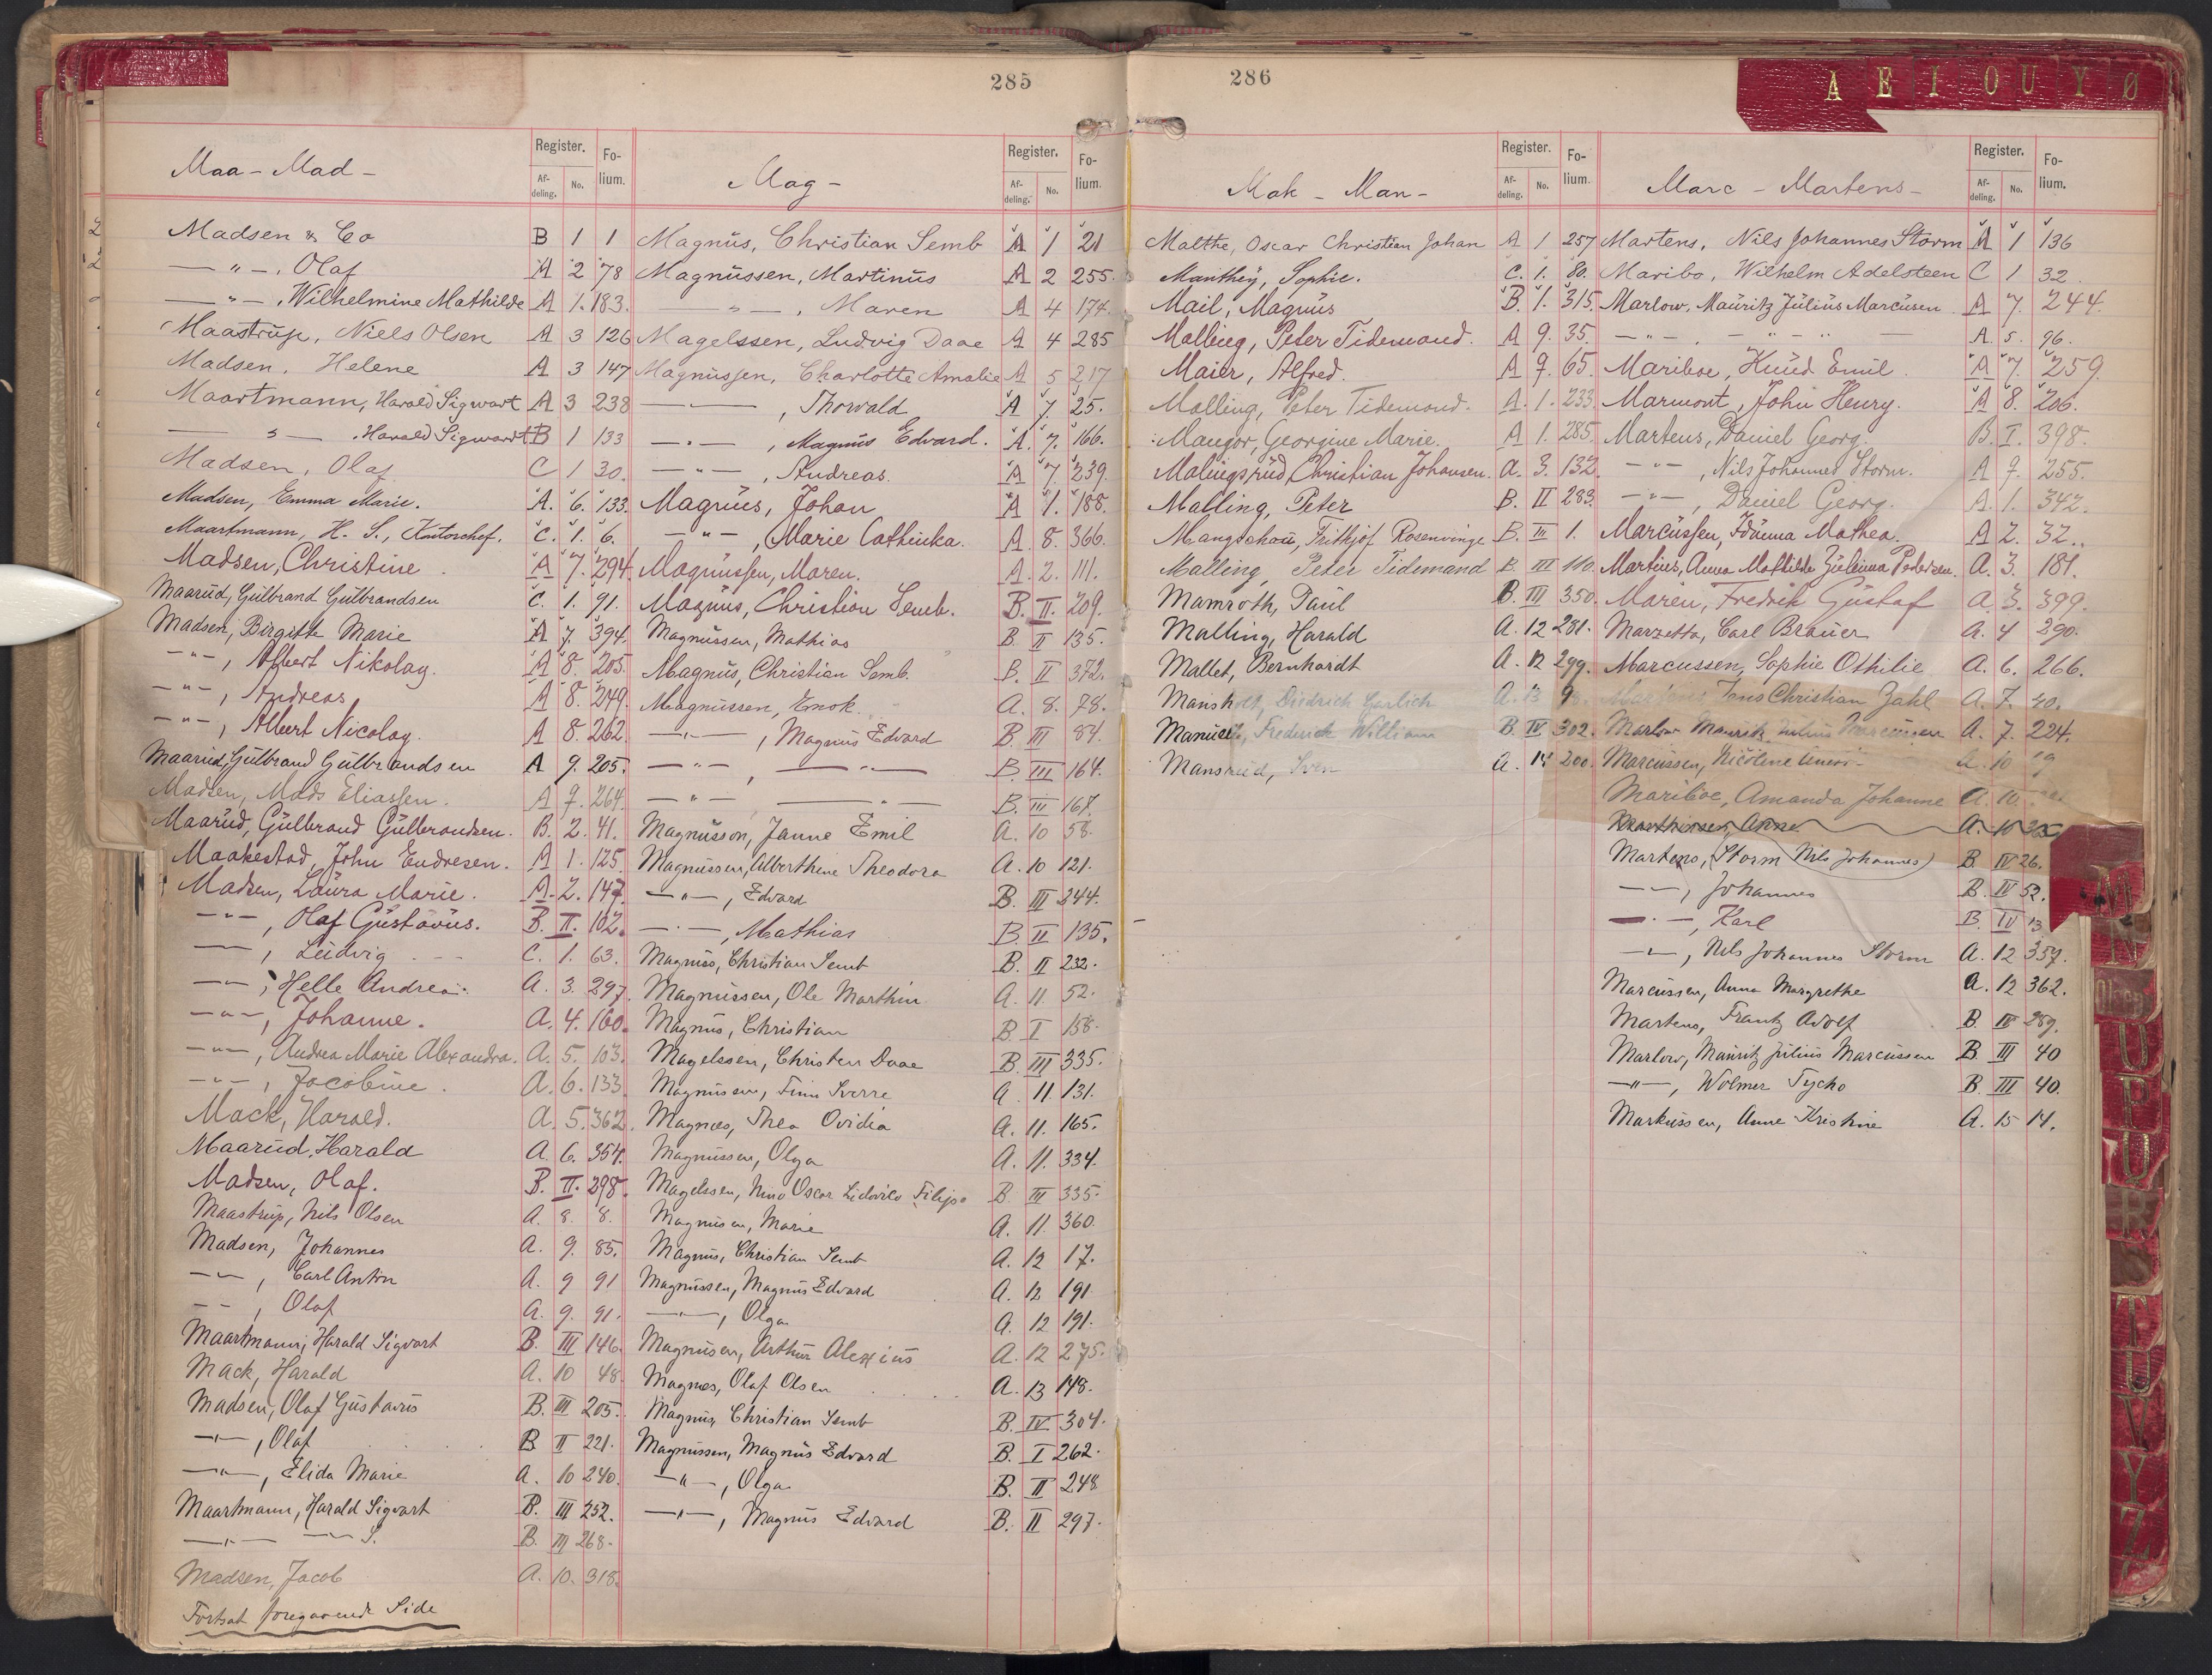 285
Maa - Mad -
Register.
Af-deling.
No.
Fo-lium.
Madsen & Co B 1 1
—"—, Olaf A 2 78
—"—, Wilhelmine Mathilde A 1. 183.
Maastrup, Niels Olsen A 3 126
Madsen, Helene A 3 147
Maartmann, Harald Sigwart A 3 238
—"—, Harald Sigwardt B 1 133
Madsen, Olaf C 1 30.
Madsen, Emma Marie. A. 6. 133.
Maartmann, H. S., Kontorchef. C. 1. 6.
Madsen, Christine A 7. 294.
Maarud, Gulbrand Gulbrandsen C. 1. 91.
Madsen, Birgitte Marie A 7. 394.
—"—, Albert Nikolay. A 8. 205.
—"—, Andreas A 8. 249.
—"—, Albert Nicolay. A 8. 262.
Maarud, Gulbrand Gulbrandsen A 9. 205.
Madsen, Mads Eliassen. A 9. 264.
Maarud, Gulbrand Gulbrandsen. B. 2. 41.
Maakestad, John Endresen. A 1. 125.
Madsen, Laura Marie. A. 2. 147.
—"—, Olaf Gustavus. B. II. 102.
—"—, Ludvig C. 1. 63.
—"—, Helle Andrea. A. 3. 297.
—"—, Johanne. A. 4. 160.
—"—, Andrea Marie Alexandra. A. 5. 103.
—"—, Jacobine. A. 6. 133.
Mack, Harald. A. 5. 362.
Maarud, Harald A. 6. 354.
Madsen, Olaf. B. II. 298.
Maastrup, Nils Olsen A. 8. 8.
Madsen, Johannes A. 9. 85.
—"—, Carl Anton A. 9 91
—"—, Olaf A. 9. 91.
Maartmann, Harald Sigvart B. III 146.
Mack, Harald A. 10 48
Madsen, Olaf Gustavus B. III 205.
—"—, Olaf B II 221.
—"—, Elida Marie A. 10 240.
Maartmann, Harald Sigvart B. III 252.
—"— —"— S. B. III 268.
Madsen, Jacob A. 10. 318.
Fortsat foregaaende Side
Mag -
Register.
Af-deling.
No.
Fo-lium.
Magnus, Christian Semb A 1 21
Magnussen, Martinus A 2 255.
—"—, Maren A 4 174.
Magelssen, Ludvig Daae A 4 285
Magnussen, Charlotte Amalie A 5 217
—"—, Thorwald A 7. 25.
—"—, Magnus Edvard. A. 7. 166.
—"—, Andreas. A 7. 239.
Magnus, Johan A 1. 188.
—"—, Marie Cathinka. A. 8. 366.
Magnussen, Maren. A. 2. 111.
Magnus, Christian Semb. B. II. 209.
Magnussen, Mathias B II 135.
Magnus, Christian Semb. B. II 372.
Magnussen, Enok. A. 8. 78.
—"—, Magnus Edvard B. III 84.
—"—, —"— B. III 164.
—"— —"— B. III 167.
Magnusson, Janne Emil A. 10 58.
Magnussen, Alberthine Theodora A. 10 121.
—"—, Edvard B. III 244.
—"—, Mathias B. II 135.
Magnus, Christian Semb B. II 232.
Magnussen, Ole Marthin A. 11. 52.
Magnus, Christian B. I 158.
Magelssen, Christen Daae B. III 335.
Magnussen, Finn Sverre A 11. 131.
Magnæs, Thea Ovidia A. 11. 165.
Magnussen, Olga A. 11. 334.
Magelssen, Nino Oscar Lidovico Filipo B. III 335.
Magnussen, Marie A. 11. 360.
Magnus, Christian Semb A. 12 17.
Magnussen, Magnus Edvard A. 12 191
—"—, Olga A. 12 191.
Magnussen, Arthur Alexius A. 12 275.
Magnæs, Olaf Olsen A. 13 148.
Magnus, Christian Semb B. IV 304.
Magnussen, Magnus Edvard B. I 262.
—"—, Olga B. II 248
—"—, Magnus Edvard B. II 297.
286
Mak - Man -
Register.
Af-deling.
No.
Fo-lium.
Malthe, Oscar Christian Johan A 1 257
Manthey, Sophie. C. 1. 80.
Mail, Magnus B. 1. 315.
Malling, Peter Tidemand. A 9. 35.
Maier, Alfred. A 9. 65.
Malling, Peter Tidemand. A. 1. 233.
Mangor, Georgine Marie. A 1. 285.
Malingsrud, Christian Johansen. A. 3. 132.
Malling, Peter B. II 283.
Mangschou, Frithjof Rosenvinge B. III 1.
Malling, Peter Tidemand B. III 110.
Mamroth, Paul B. III 350.
Malling, Harald A. 12 281.
Mallet, Bernhardt A. 12 299.
Mansholt, Diedrich Garlich A. 13
Manuell, Frederick William B. IV 302.
Mansrud, Sven A. 14 200.
Marc - Martens -
Register.
Af-deling.
No.
Fo-lium.
Martens, Nils Johannes Storm A 1 136
Maribo, Wilhelm Adelsteen C 1 32
Marlow, Mauritz Julius Marcusen A 7. 244.
—"—, —"— A. 5. 96.
Mariboe, Knud Emil. A 7. 259.
Marmont, John Henry. A 8. 206.
Martens, Daniel Georg. B. I. 398.
—"—, Nils Johannes Storm. A 9. 255.
—"—, Daniel Georg. A. 1. 342.
Marcussen, Idanna Mathea. A 2. 32.
Martins, Anna Mathilde Juliana Pedersen. A. 3. 181.
Maren, Fredrik Gustaf A. 3. 399.
Marzetta, Carl Brauer A. 4 290.
Marcussen, Sophie Othilie A. 6. 266.
Jens Christian Zahl A. 7. 40.
Marlow Mauritz Julius Marcussen A. 7. 224.
Marcussen, Nicoline A. 10
Mariboe, Amanda Johanne A. 10
Marthinsen, Anne A. 10
Martens, (Storm Nils Johannes) B. IV 26.
—"—, Johannes B. IV 52.
—"—, Karl B. IV 13
—"—, Nils Johannes Storm A. 12 357.
Marcussen, Anna Margrethe A. 12 362.
Martens, Frantz Adolf B. IV 289.
Marlow, Mauritz Julius Marcussen B. III 40
—"—, Wolmer Tycho B. III 40.
Markussen, Anne Kristine A. 15 14.
A E I O U Y Ø
M
N
Olsen
O
P
U
R
S
T
U
V
Y
Z